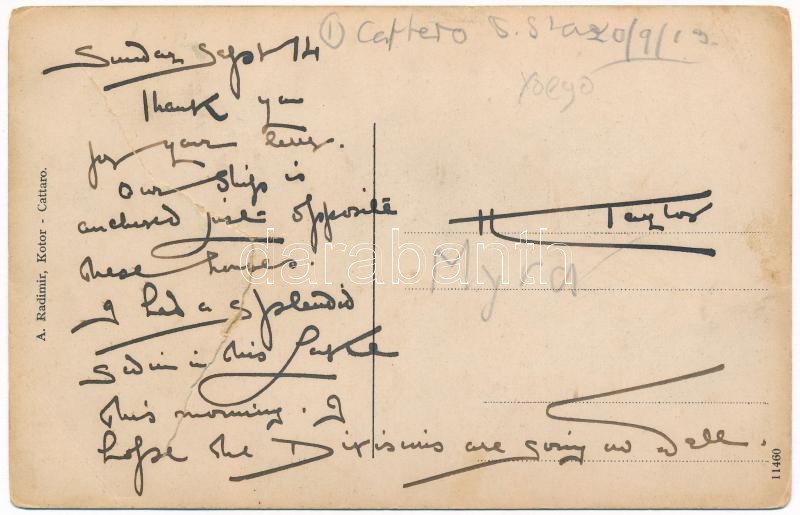 ① Cattero S. 20/9/19.
Sunday Sept 14
Thank you
for your letter.
Our Ship is
anchored just opposite
these houses.
I had a splendid
swim in this Lake
This morning. I
hope the are going on well.
H Taylor
Myra
A. Radimir, Kotor - Cattaro.
11460
darabanth